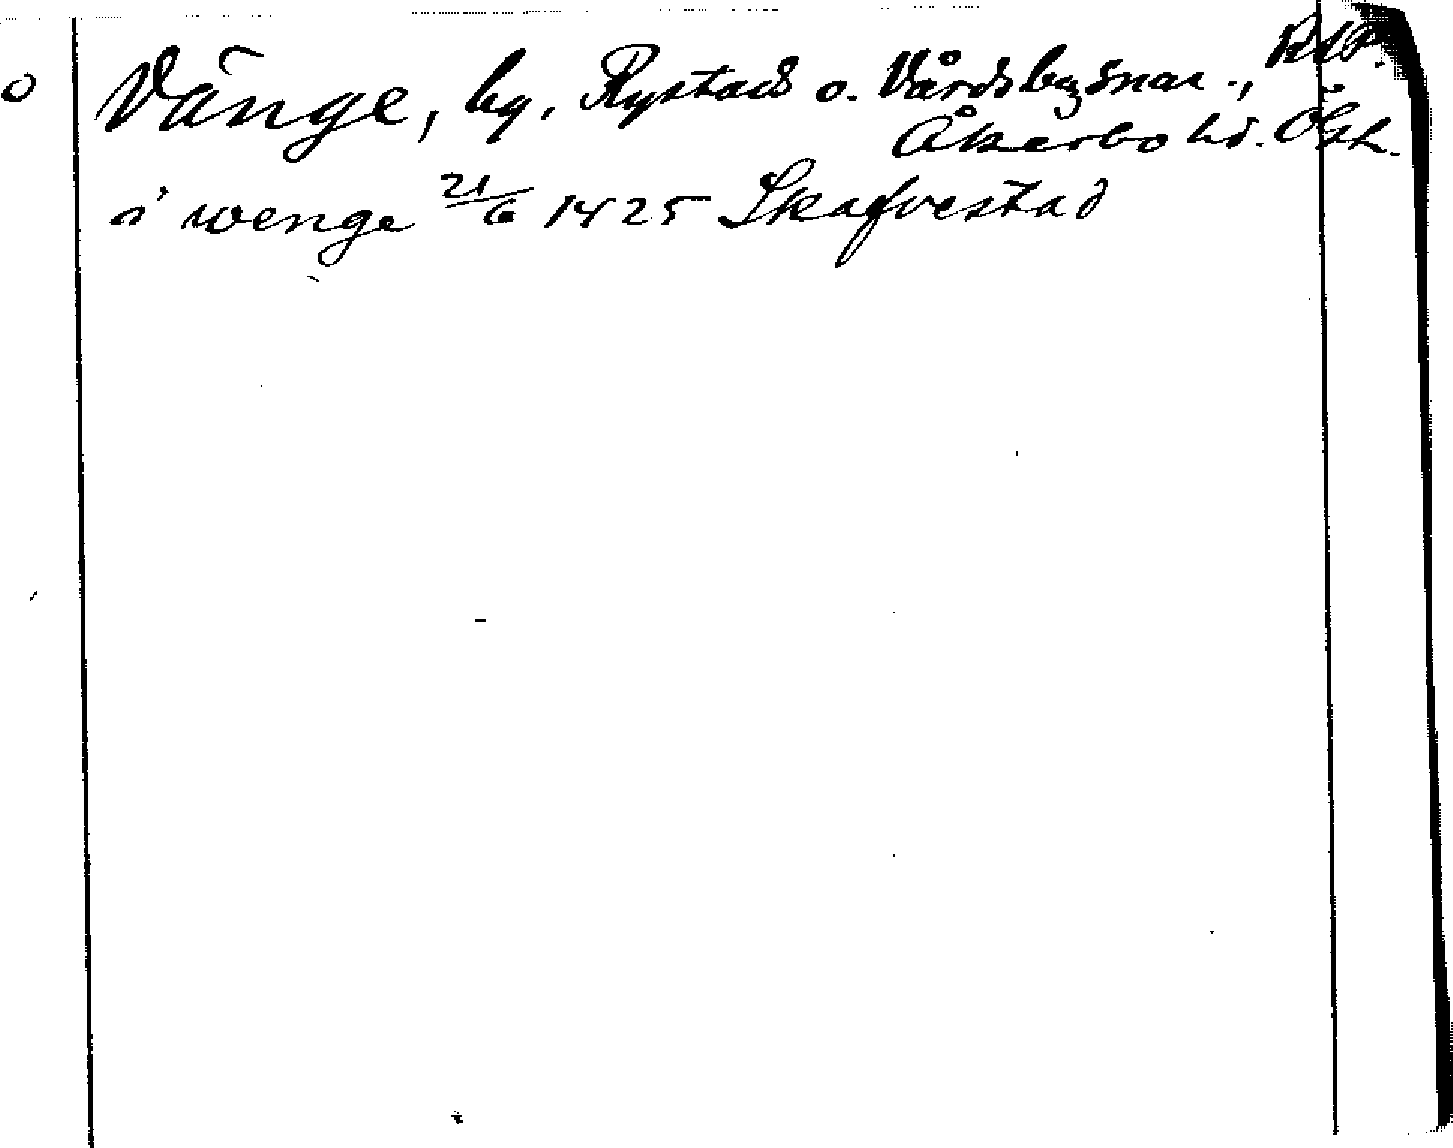 o Vänge, by, Rystads o. Vårdsbergs snar.,
Åkerbo hd. Östl.
i wenge 21/6 1425 Skafvestad